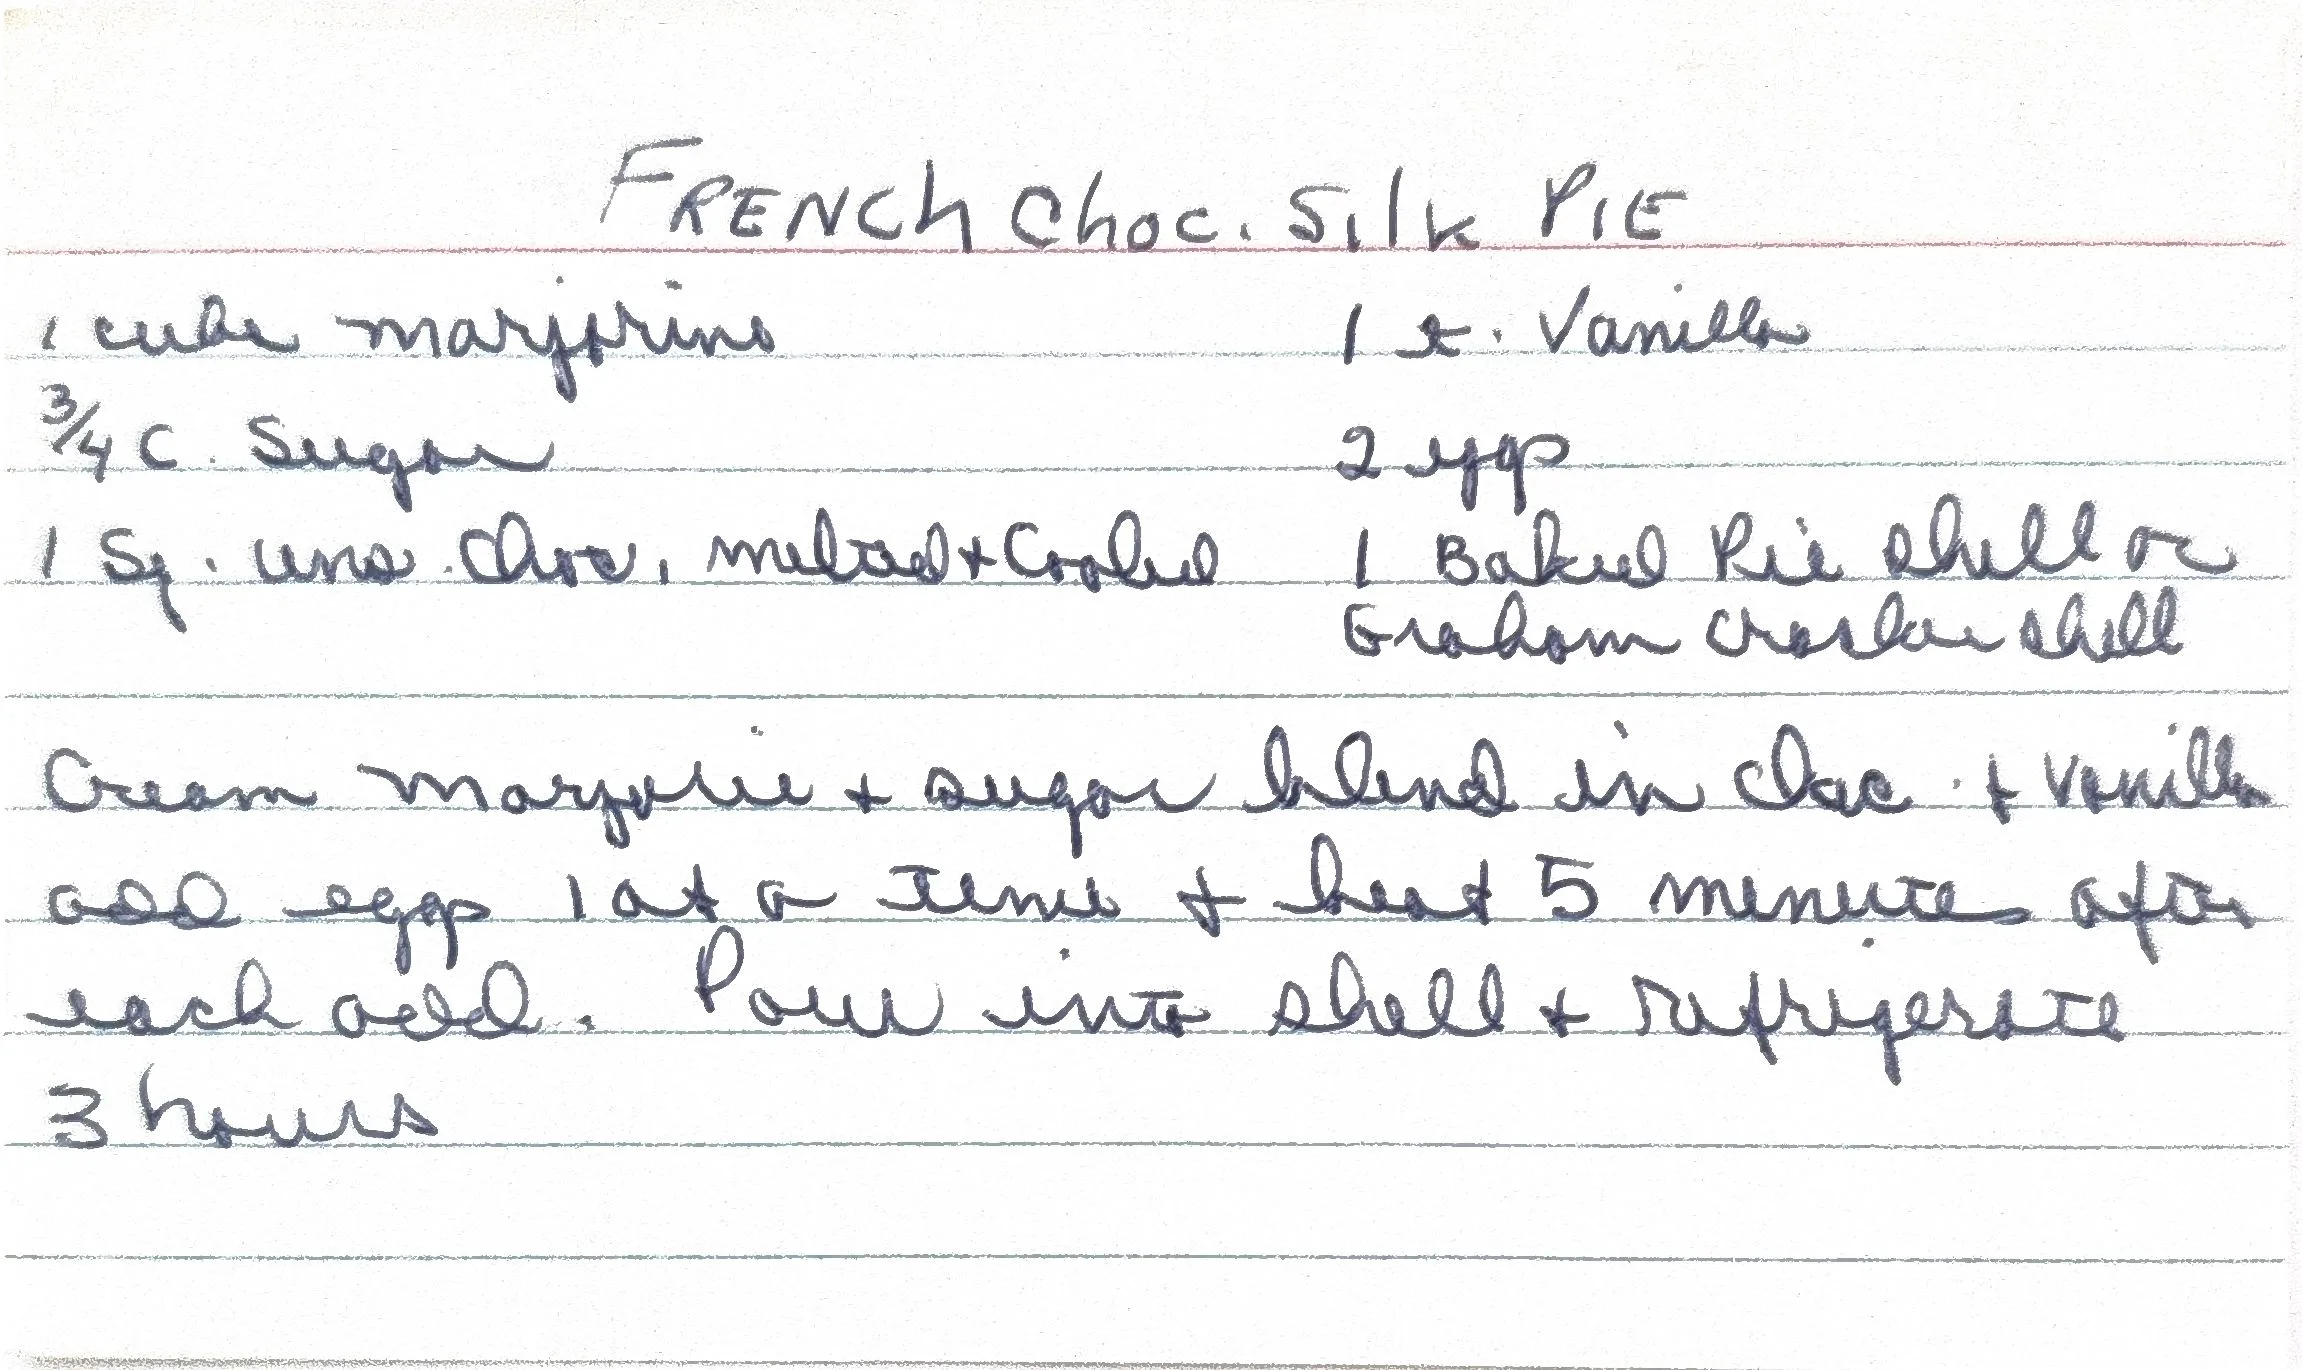 FRENCh Choc. Silk PIE
1 cube marjorine
3/4 C. Sugar
1 Sq. uns. Choc, melted + Cooled
1 t. Vanilla
2 eggs
1 Baked Pie shell or
Graham cracker shell
Cream marjorie + sugar blend in choc. + vanilla
add eggs 1 at a time + beat 5 minutes after
each add. Pour into shell + rafrigerate
3 hours